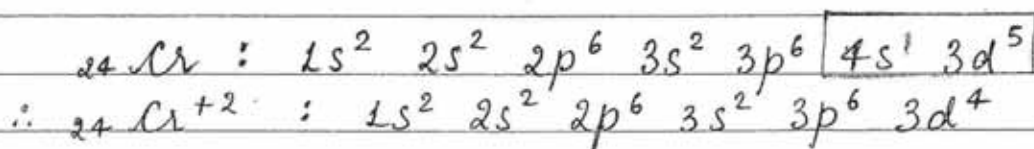 ₂₄Cr : 1s² 2s² 2p⁶ 3s² 3p⁶ 4s¹ 3d⁵
∴ ₂₄Cr⁺² : 1s² 2s² 2p⁶ 3s² 3p⁶ 3d⁴